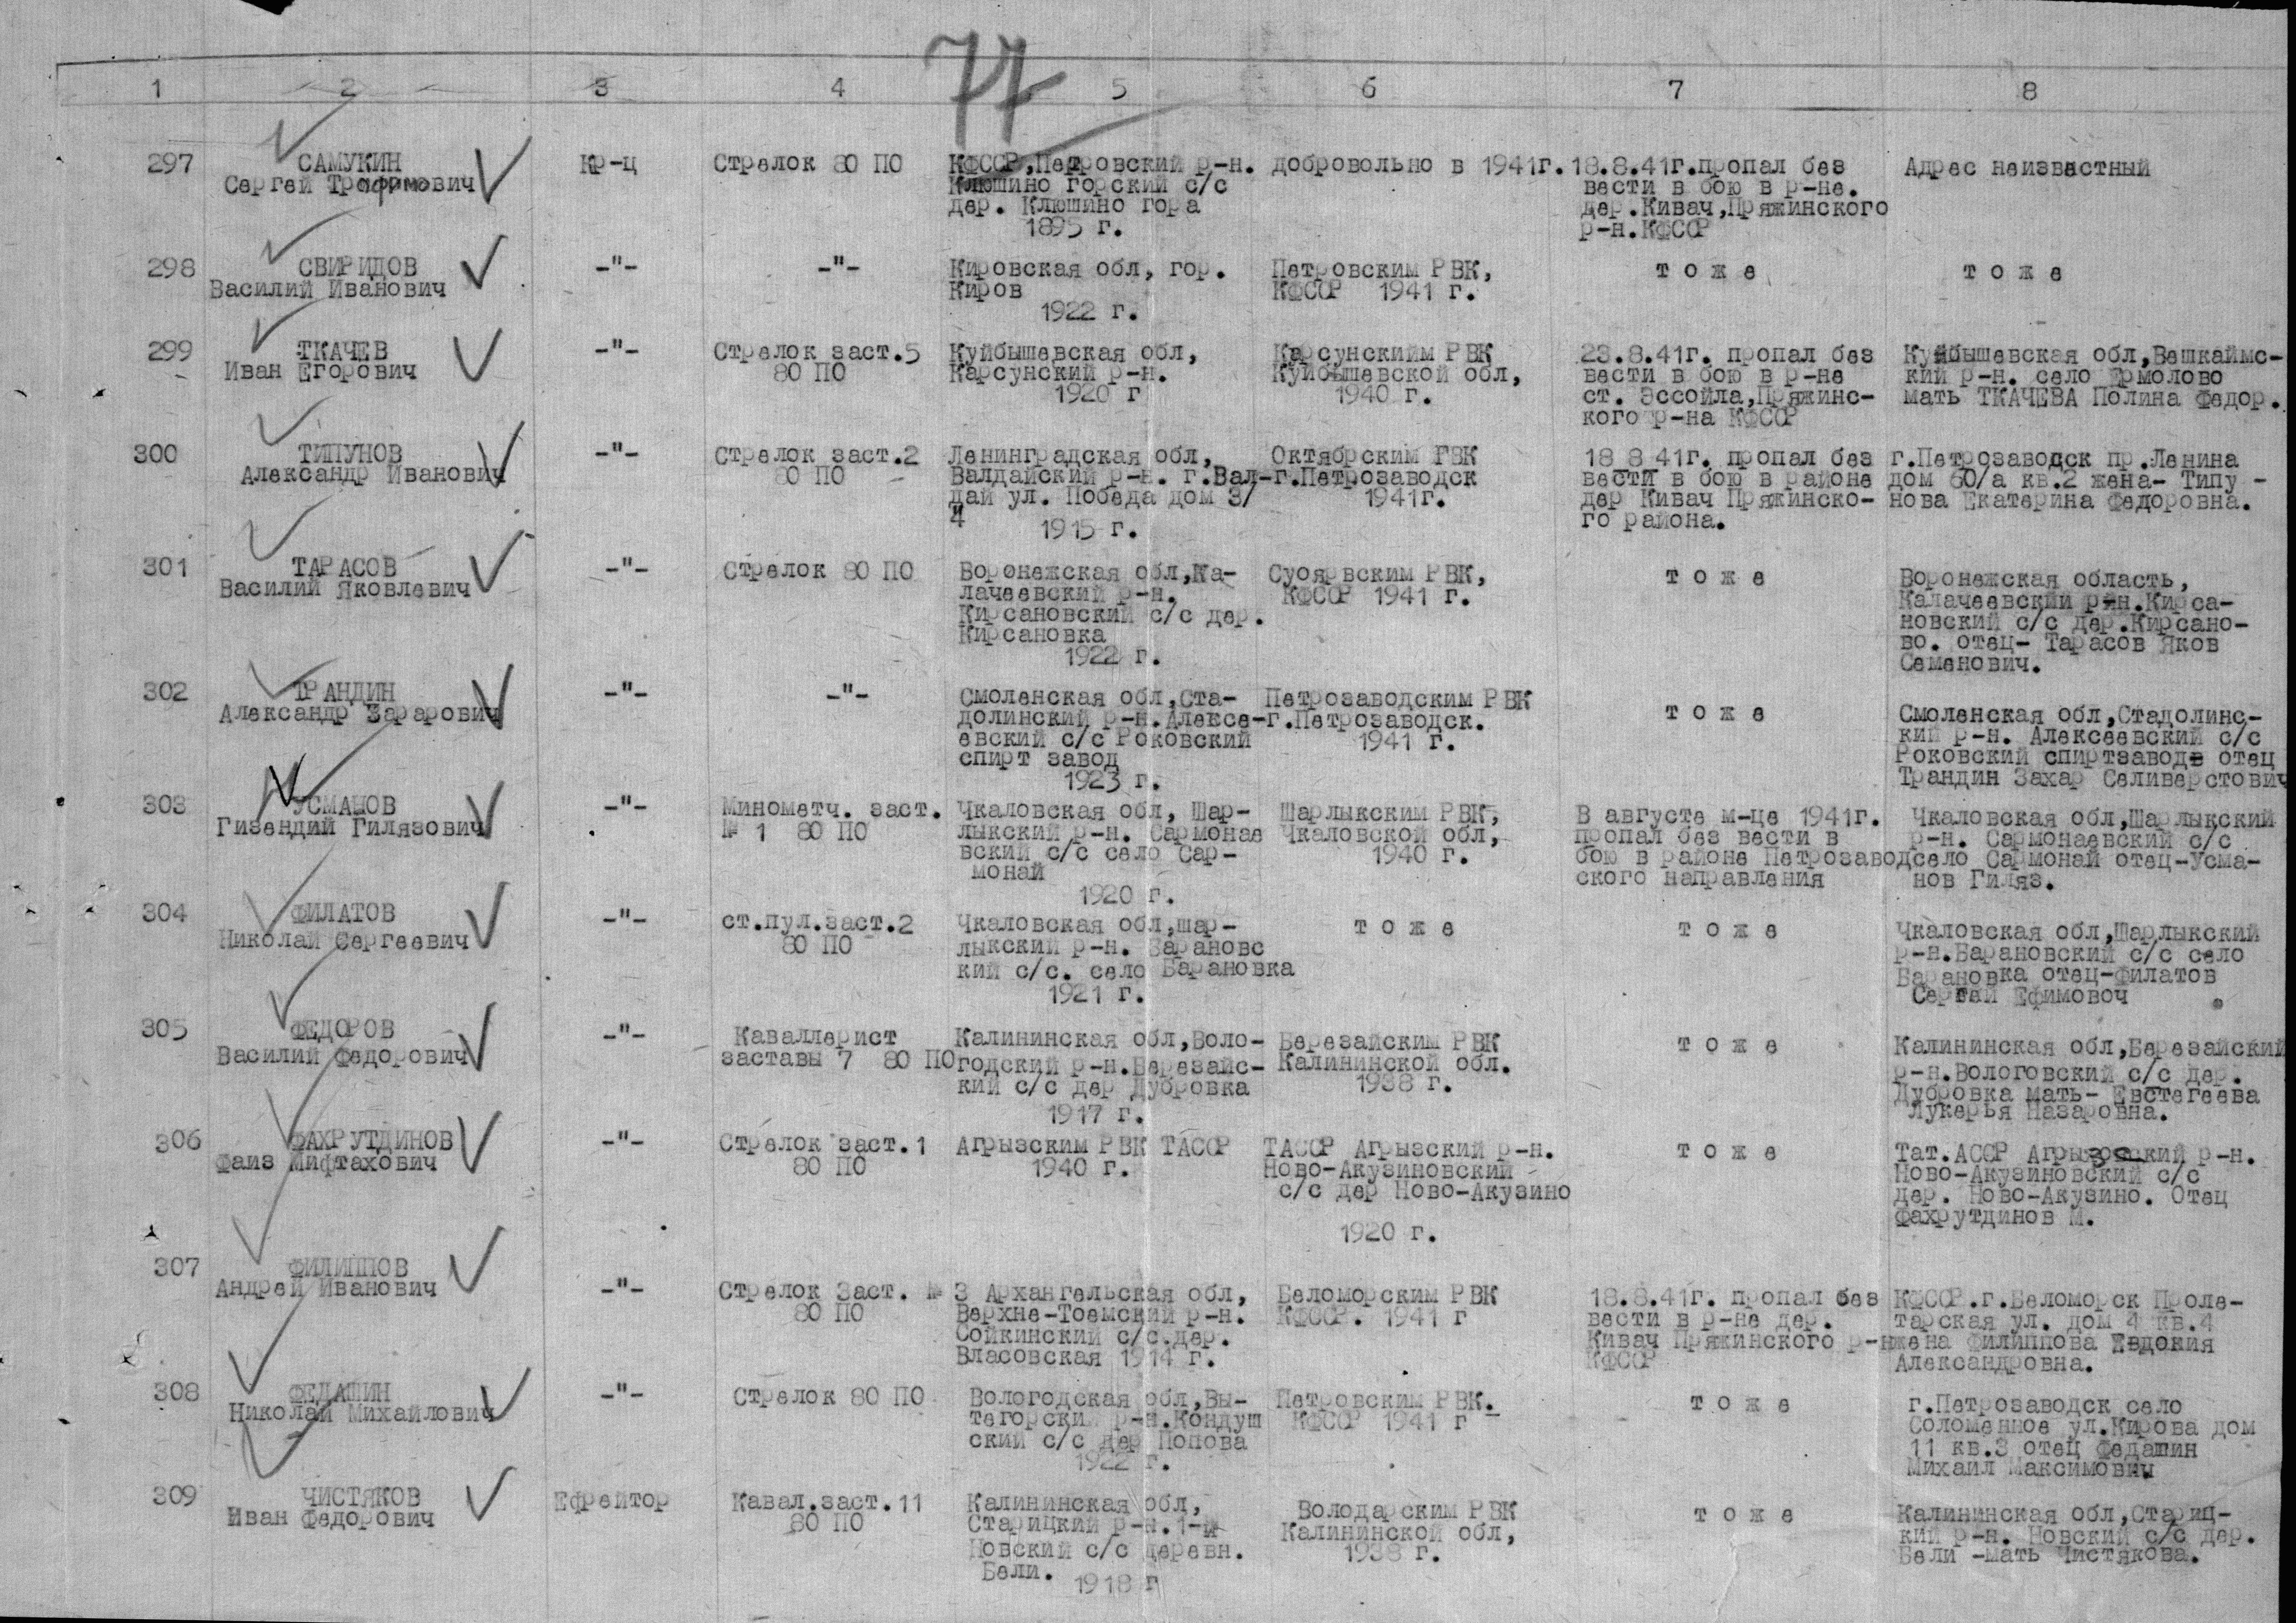 77
1 2 3 4 5 6 7 8
297
САМУКИН
Сергей Трофимович
Кр-ц
Стрелок 80 ПО
КФССР,Петровский р-н.
Клюшино горский с/с
дер. Клюшино гора
1895 г.
добровольно в 1941г.
18.8.41г.пропал без
вести в бою в р-не.
дер.Кивач,Пряжинского
р-н.КФССР
Адрес неизвестный
298
СВИРИДОВ
Василий Иванович
-"-
-"-
Кировская обл, гор.
Киров
1922 г.
Петровским РВК,
КФССР 1941 г.
т о ж е
т о ж е
299
ТКАЧЕВ
Иван Егорович
-"-
Стрелок заст.5
80 ПО
Куйбышевская обл,
Карсунский р-н.
1920 г
Карсунскийм РВК
Куйбышевской обл,
1940 г.
23.8.41г. пропал без
вести в бою в р-не
ст. Эссойла,Пряжинс-
кого р-на КФССР
Куйбышевская обл,Вешкаймс-
кий р-н. село Ермолово
мать ТКАЧЕВА Полина Федор.
300
ТИПУНОВ
Александр Иванович
-"-
Стрелок заст.2
80 ПО
Ленинградская обл,
Валдайский р-н. г.Вал-
дай ул. Победа дом 3/
4
1915 г.
Октябрским ГВК
г.Петрозаводск
1941г.
18 8 41г. пропал без
вести в бою в районе
дер Кивач Пряжинско-
го района.
г.Петрозаводск пр.Ленина
дом 60/а кв.2 жена- Типу -
нова Екатерина Федоровна.
301
ТАРАСОВ
Василий Яковлевич
-"-
Стрелок 80 ПО
Воронежская обл,Ка-
лачеевский р-н.
Кирсановский с/с дер.
Кирсановка
1922 г.
Суоярвским РВК,
КФССР 1941 г.
т о ж е
Воронежская область,
Калачеевский р-н.Кирса-
новский с/с дер.Кирсано-
во. отец- Тарасов Яков
Семенович.
302
ТРАНДИН
Александр Зарарович
-"-
-"-
Смоленская обл,Ста-
долинский р-н.Алексе-
евский с/с Роковский
спирт завод
1923 г.
Петрозаводским РВК
г.Петрозаводск.
1941 г.
т о ж е
Смоленская обл,Стадолинс-
кий р-н. Алексеевский с/с
Роковский спиртзавод отец
Трандин Захар Селиверстович
303
УСМАНОВ
Гизендий Гилязович
-"-
Минометч. заст.
№ 1 80 ПО
Чкаловская обл, Шар-
лыкский р-н. Сармонае
вский с/с село Сар-
монай
1920 г.
Шарлыкским РВК,
Чкаловской обл,
1940 г.
В августе м-це 1941г.
пропал без вести в
бою в районе Петрозавод
ского направления
Чкаловская обл,Шарлыкский
р-н. Сармонаевский с/с
село Сармонай отец-Усма-
нов Гиляз.
304
ФИЛАТОВ
Николай Сергеевич
-"-
ст.пул.заст.2
80 ПО
Чкаловская обл,шар-
лыкский р-н. Барановс
кий с/с. село Барановка
1921 г.
т о ж е
т о ж е
Чкаловская обл,Шарлыкский
р-н.Барановский с/с село
Барановка отец-Филатов
Сергей Ефимовоч
305
ФЕДОРОВ
Василий Федорович
-"-
Каваллерист
заставы 7 80 ПО
Калининская обл,Воло-
годский р-н.Березайс-
кий с/с дер Дубровка
1917 г.
Березайским РВК
Калининской обл.
1938 г.
т о ж е
Калининская обл,Березайский
р-н.Вологовский с/с дер.
Дубровка мать- Евстегеева
Лукерья Назаровна.
306
ФАХРУТДИНОВ
Фаиз Мифтахович
-"-
Стрелок заст.1
80 ПО
Агрызским РВК ТАССР
1940 г.
ТАССР Агрызский р-н.
Ново-Акузиновский
с/с дер Ново-Акузино
1920 г.
т о ж е
Тат.АССР Агрызский р-н.
Ново-Акузиновский с/с
дер. Ново-Акузино. Отец
Фахрутдинов М.
307
ФИЛИППОВ
Андрей Иванович
-"-
Стрелок Заст. № 3
80 ПО
Архангельская обл,
Верхне-Тоемский р-н.
Сойкинский с/с.дер.
Власовская 1914 г.
Беломорским РВК
КФССР. 1941 г
18.8.41г. пропал без
вести в р-не дер.
Кивач Пряжинского р-н
КФССР
КФССР.г.Беломорск Проле-
тарская ул. дом 4 кв.4
жена Филиппова Евдокия
Александровна.
308
ФЕДАШИН
Николай Михайлович
-"-
Стрелок 80 ПО
Вологодская обл,Вы-
тегорский р-н.Кондуш
ский с/с дер Попова
1922 г.
Петровским РВК.
КФССР 1941 г
т о ж е
г.Петрозаводск село
Соломенное ул.Кирова дом
11 кв.3 отец Федашин
Михаил Максимович
309
ЧИСТЯКОВ
Иван Федорович
Ефрейтор
Кавал.заст.11
80 ПО
Калининская обл,
Старицкий р-н.1-й
Новский с/с деревн.
Бели. 1918 г
Володарским РВК
Калининской обл,
1938 г.
т о ж е
Калининская обл,Стариц-
кий р-н. Новский с/с дер.
Бели -мать Чистякова.